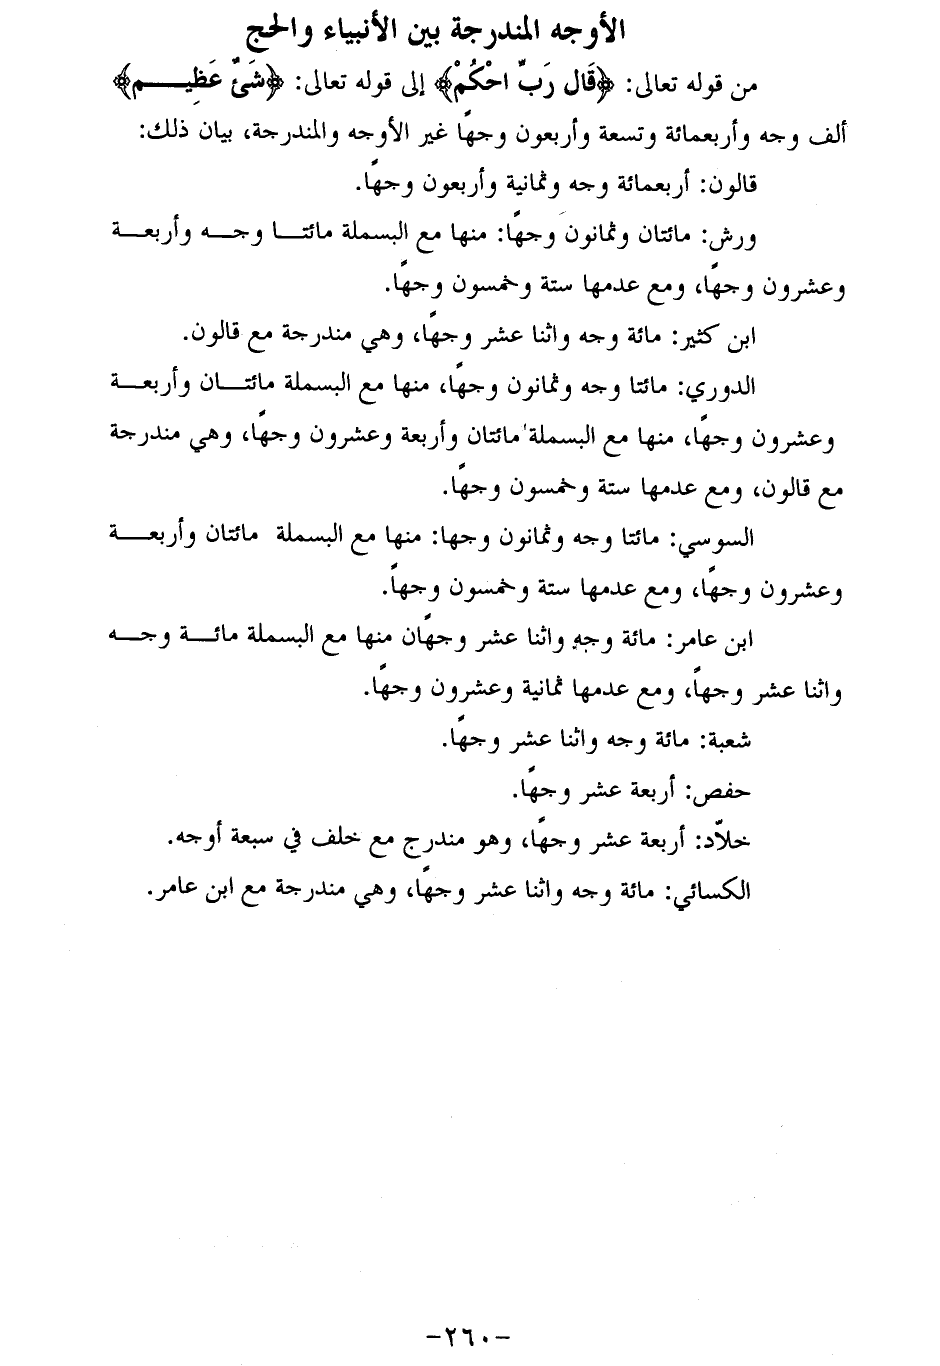 الأوجه المندرجة بين الأنبياء والحج
من قوله تعالى: ﴿قَال رَبِّ احْكُمْ﴾ إلى قوله تعالى: ﴿شَئٌ عَظِيـــم﴾
ألف وجه وأربعمائة وتسعة وأربعون وجهًا غير الأوجه والمندرجة، بيان ذلك:
قالون: أربعمائة وجه وثمانية وأربعون وجهًا.
ورش: مائتان وثمانون وجهًا: منها مع البسملة مائتـــا وجـــه وأربعـــة
وعشرون وجهًا، ومع عدمها ستة وخمسون وجهًا.
ابن كثير: مائة وجه واثنا عشر وجهًا، وهي مندرجة مع قالون.
الدوري: مائتا وجه وثمانون وجهًا، منها مع البسملة مائتـــان وأربعـــة
وعشرون وجهًا، منها مع البسملة مائتان وأربعة وعشرون وجهًا، وهي مندرجة
مع قالون، ومع عدمها ستة وخمسون وجهًا.
السوسي: مائتا وجه وثمانون وجها: منها مع البسملة مائتان وأربعـــة
وعشرون وجهًا، ومع عدمها ستة وخمسون وجهاً.
ابن عامر: مائة وجهٍ واثنا عشر وجهًان منها مع البسملة مائـــة وجـــه
واثنا عشر وجهاً، ومع عدمها ثمانية وعشرون وجهًا.
شعبة: مائة وجه واثنا عشر وجهًا.
حفص: أربعة عشر وجهًا.
خلاّد: أربعة عشر وجهًا، وهو مندرج مع خلف في سبعة أوجه.
الكسائي: مائة وجه واثنا عشر وجهًا، وهي مندرجة مع ابن عامر.
-٢٦٠-